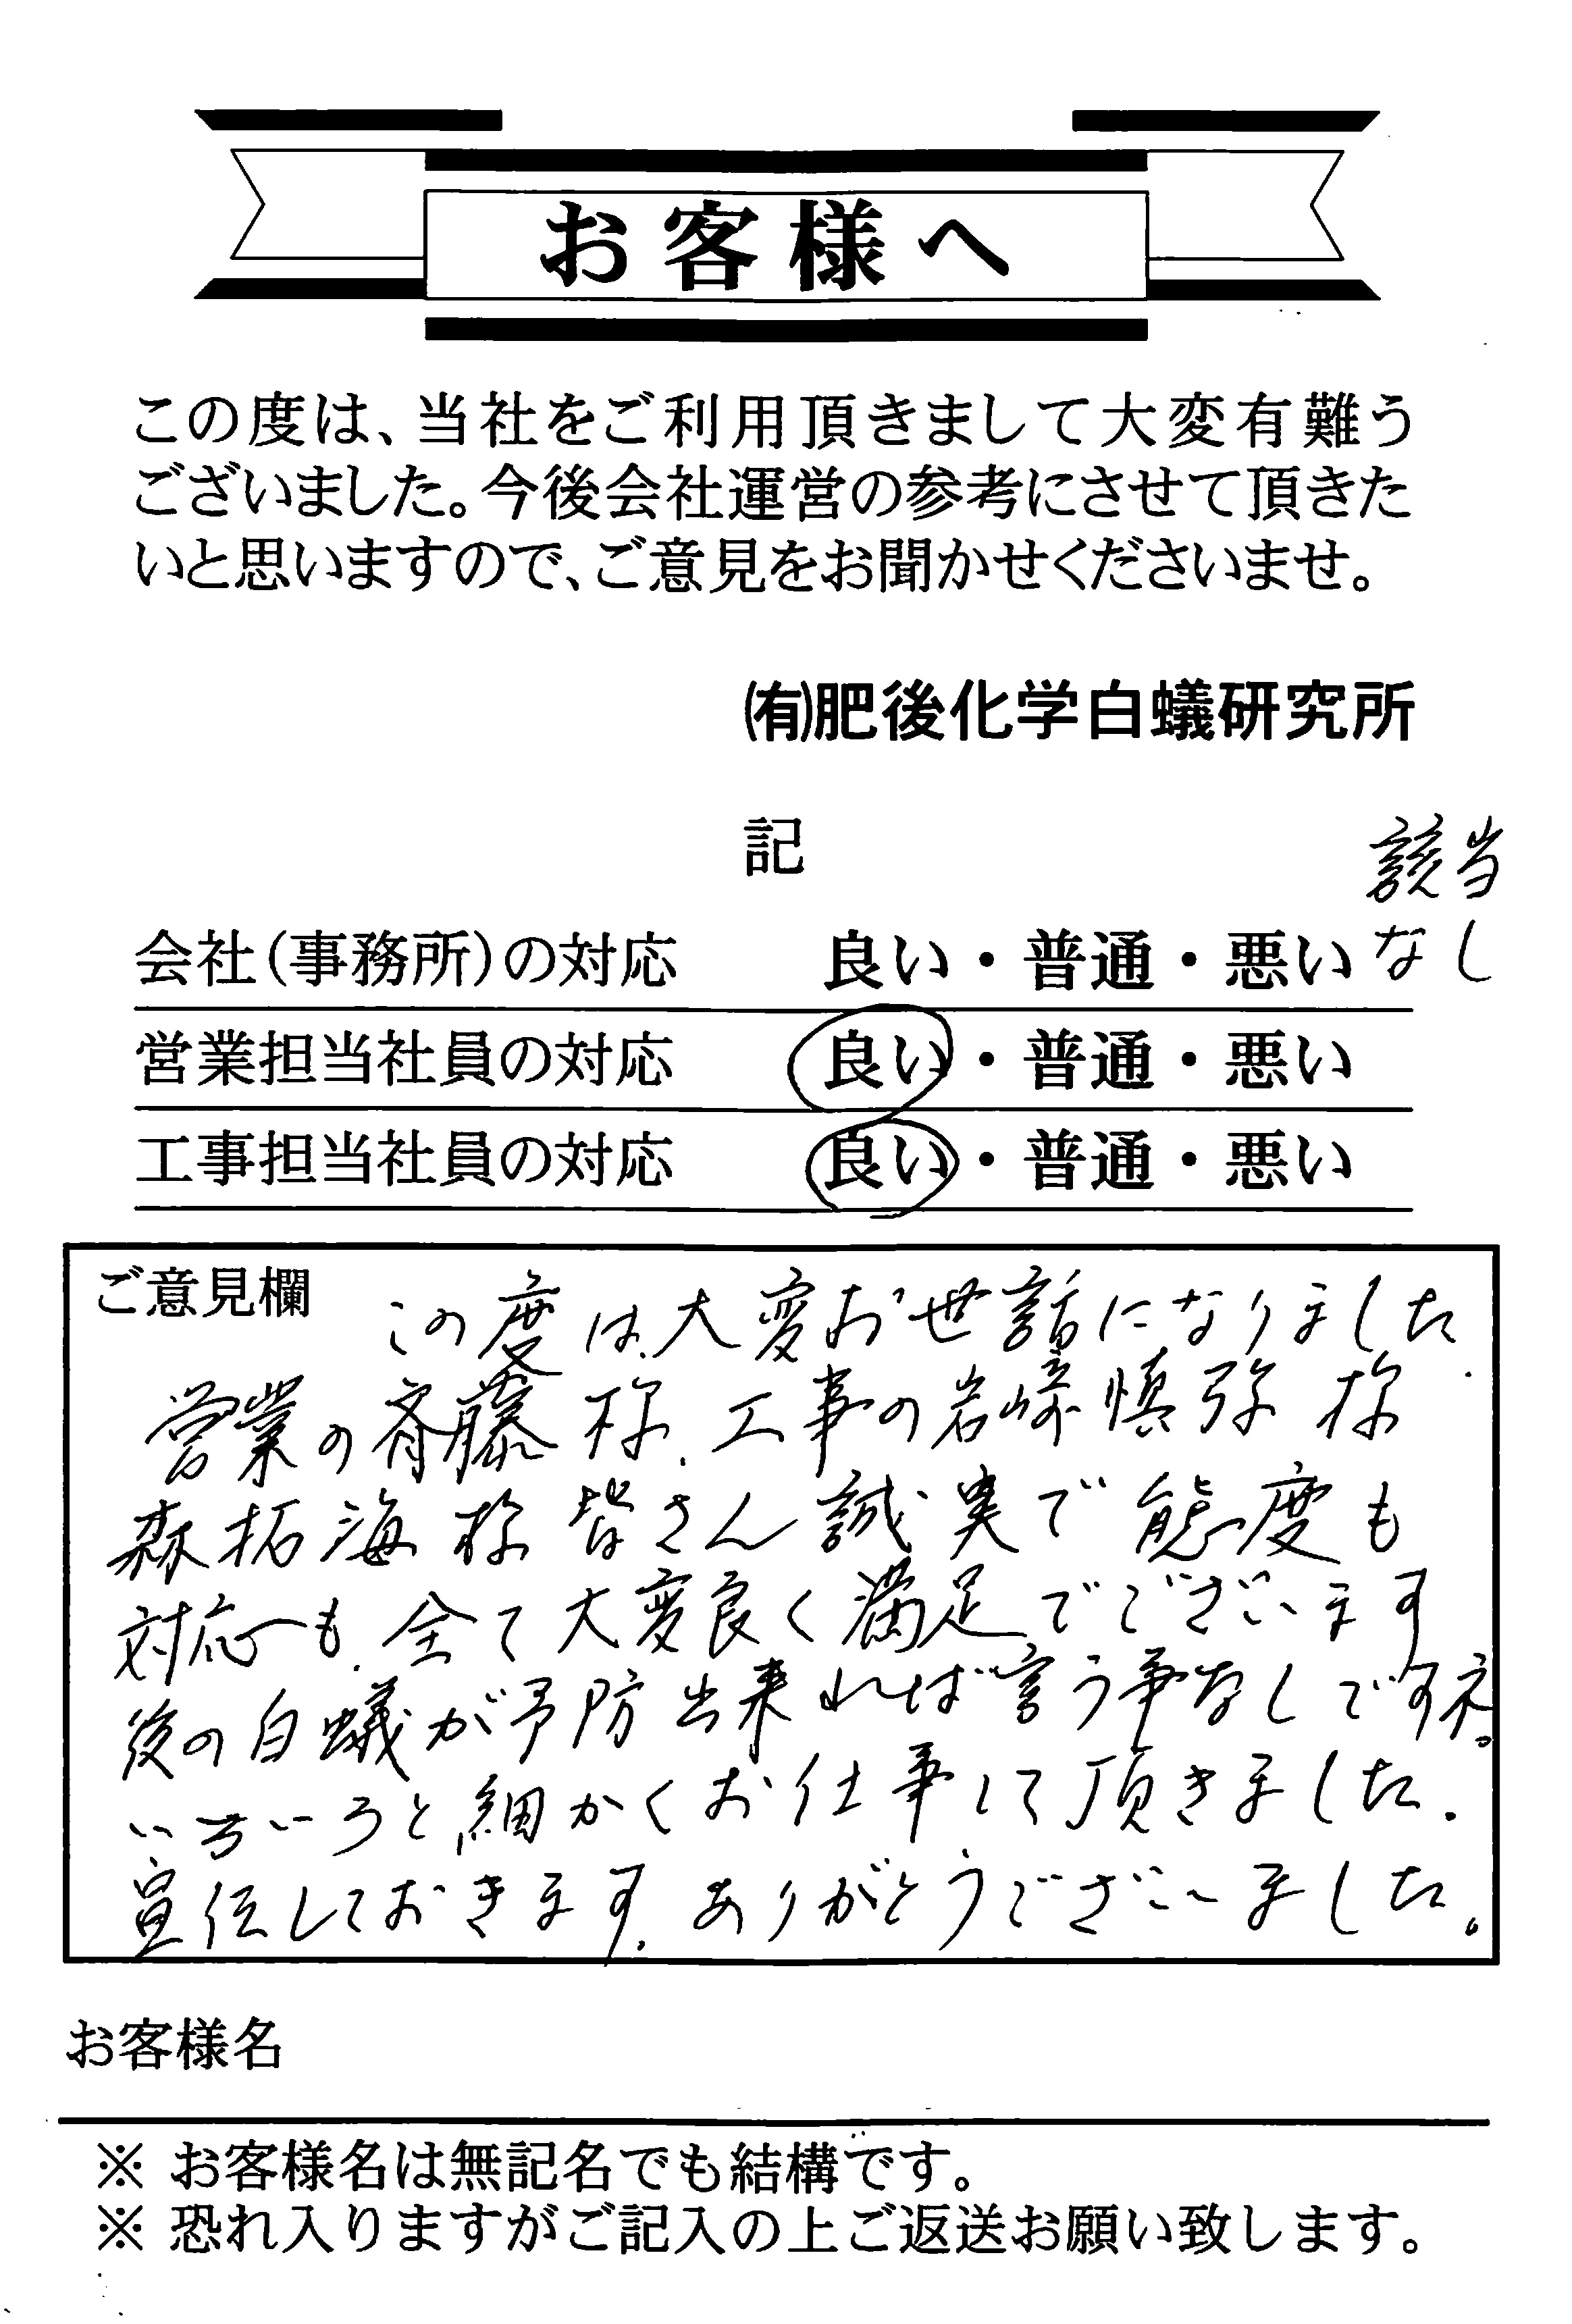 お客様へ
この度は、当社をご利用頂きまして大変有難う
ございました。今後会社運営の参考にさせて頂きた
いと思いますので、ご意見をお聞かせくださいませ。
㈲肥後化学白蟻研究所
記
該当
会社(事務所)の対応 良い・普通・悪い なし
営業担当社員の対応 良い・普通・悪い
工事担当社員の対応 良い・普通・悪い
ご意見欄 この度は、大変お世話になりました。
営業の斉藤様、工事の岩崎慎弥様
森拓海様皆さん誠実で態度も
対応も、全て大変良く満足でございます
後の白蟻が予防出来れば言う事なしですネ。
いろいろと、細かくお仕事して頂きました。
宣伝しておきます。ありがとうございました。
お客様名
※ お客様名は無記名でも結構です。
※ 恐れ入りますがご記入の上ご返送お願い致します。